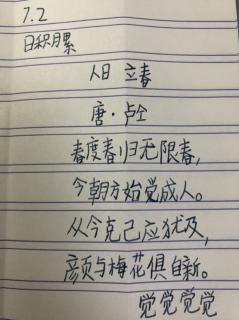 7.2
日积月累
人日 立春
唐·卢仝
春度春归无限春，
今朝方始觉成人。
从今克己应犹及，
颜与梅花俱自新。
觉觉觉觉